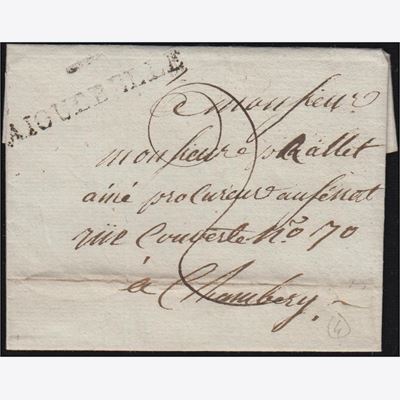 AIGUEBELLE
a monsieur
monsieur pRallet
ainé procureur au sénat
rüe Couverte No. 70
à Chambery.
4